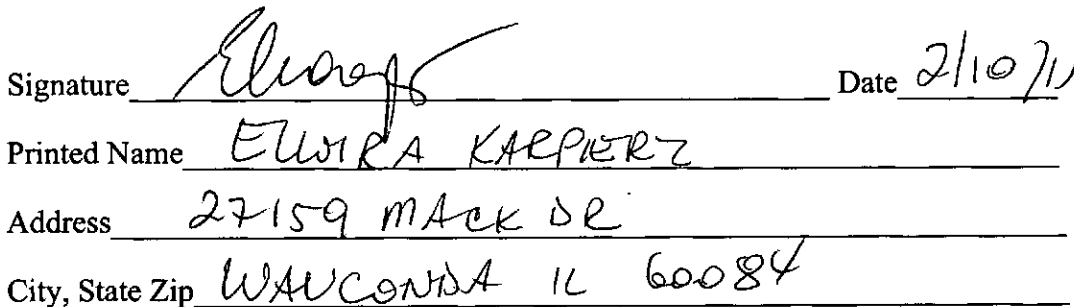 Signature Date 2/10/11
Printed Name ELWIRA KARPIERZ
Address 27159 MACK DR
City, State Zip WAUCONDA IL 60084